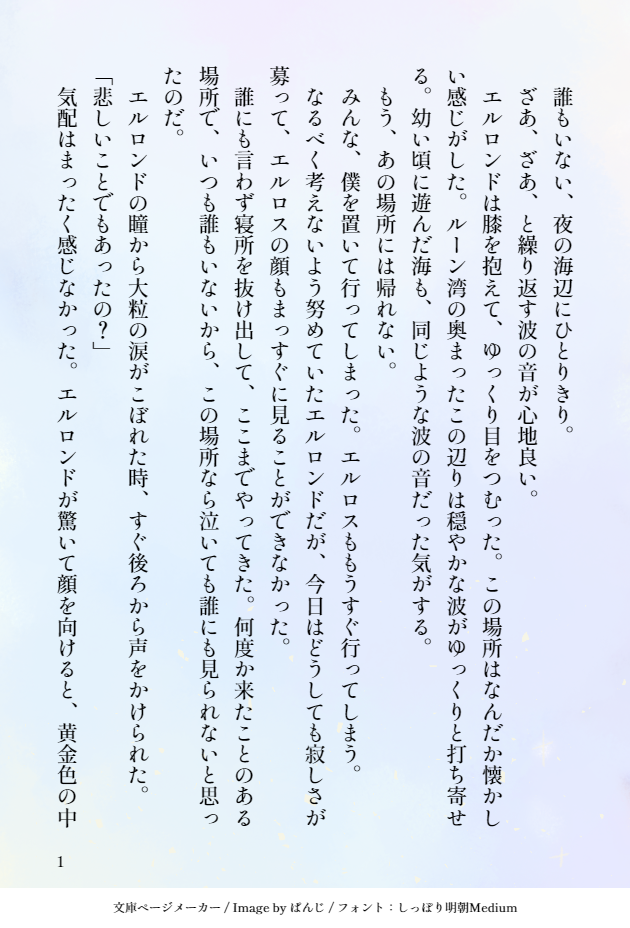 誰もいない、夜の海辺にひとりきり。
ざあ、ざあ、と繰り返す波の音が心地良い。
エルロンドは膝を抱えて、ゆっくり目をつむった。この場所はなんだか懐かし
い感じがした。ルーン湾の奥まったこの辺りは穏やかな波がゆっくりと打ち寄せ
る。幼い頃に遊んだ海も、同じような波の音だった気がする。
もう、あの場所には帰れない。
みんな、僕を置いて行ってしまった。エルロスももうすぐ行ってしまう。
なるべく考えないよう努めていたエルロンドだが、今日はどうしても寂しさが
募って、エルロスの顔もまっすぐに見ることができなかった。
誰にも言わず寝所を抜け出して、ここまでやってきた。何度か来たことのある
場所で、いつも誰もいないから、この場所なら泣いても誰にも見られないと思っ
たのだ。
エルロンドの瞳から大粒の涙がこぼれた時、すぐ後ろから声をかけられた。
「悲しいことでもあったの？」
気配はまったく感じなかった。エルロンドが驚いて顔を向けると、黄金色の中
1
文庫ページメーカー / Image by ぱんじ / フォント：しっぽり明朝Medium